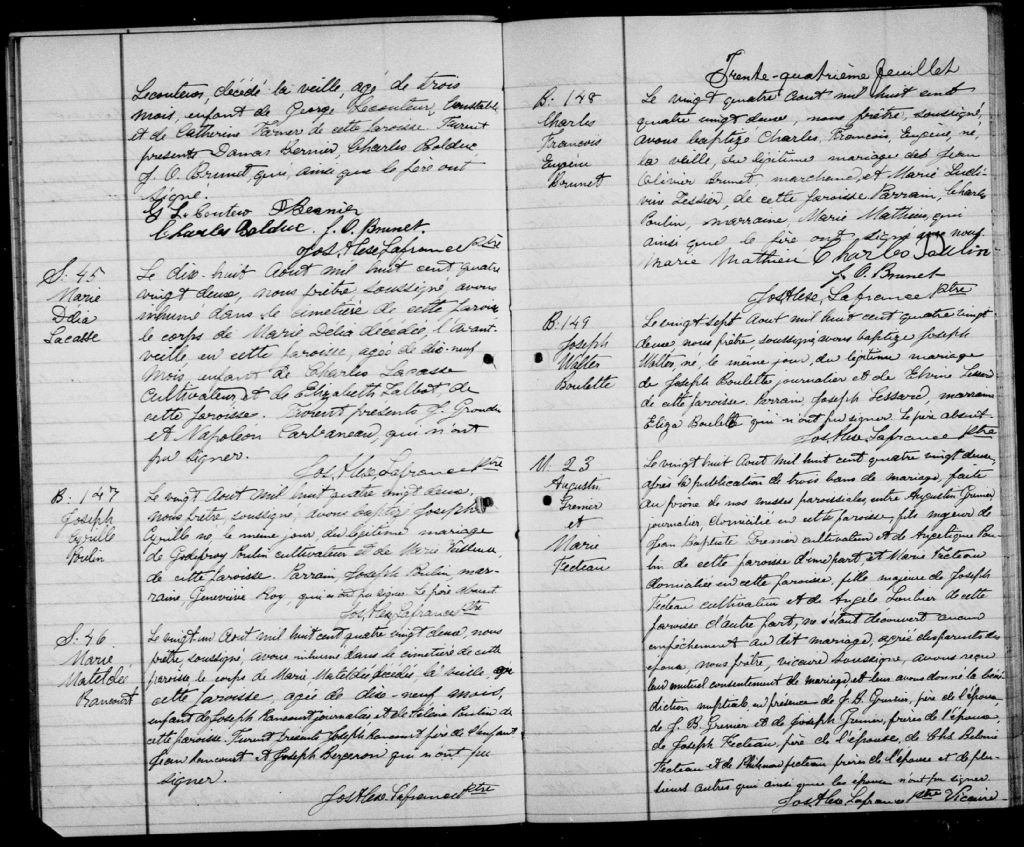 Lecouteur, décédé la veille, agé de trois
mois, enfant de George Lecouteur, Constable
et de Catherine de cette paroisse. Furent
presents Damas Bernier, Charles Bolduc
J. O. Brunet, qui, ainsi que le père ont
signé.
G Le Couteur D Bernier
Charles Bolduc. J. O. Brunet.
Jos, Alex, Lafrance Ptre
S. 45
Marie
Delia
Lacasse
Le dix-huit Aout mil huit cent quatre
vingt deux, nous prêtre soussigné avons
inhumé dans le cimetière de cette paroisse
le corps de Marie Delia decedée l'avant
veille en cette paroisse, agée de dix-neuf
mois, enfant de Charles Lacasse
Cultivateur, et de Elizabeth Talbot, de
cette paroisse. Furent presents J. Grondin
et Napoléon Carbaneau, qui n'ont
pu signer.
Jos, Alex, Lafrance Ptre
B. 147
Joseph
Cyrille
Poulin
Le vingt Aout mil huit quatre vingt deux,
nous prêtre, soussigné, avons baptisé Joseph
Cyrille né, le même jour, du légitime mariage
de Godefroy Poulin cultivateur et de Marie
de cette paroisse. Parrain, Joseph Poulin, mar-
raine, Geneviève Roy, qui n'ont pas signé. Le père absent
Jos, Alex, Lafrance Ptre
S. 46
Marie
Matilde
Rancourt
Le vingt-un Aout mil huit cent quatre vingt deux, nous
prêtre, soussigné, avons inhumé dans le cimetière de cette
paroisse, le corps de Marie Matilde décédée, la veille, en
cette paroisse, agée de dix-neuf mois,
enfant de Joseph Rancourt journalier et de Helène Poulin de
cette paroisse. Furent presents Joseph Rancourt père de l'enfant
Jean Rancourt et Joseph Bergeron qui n'ont pu
signer.
Jos Alex. Lafrance Ptre
Trente-quatrième feuillet
B. 148
Charles
Francois
Eugène
Brunet
Le vingt quatre Aout mil huit cent
quatre vingt deux, nous prêtre, soussigné,
avons baptizé Charles, Francois, Eugène, né,
la veille, du légitime mariage de Jean
Olivier Brunet, marchand, et Marie Ludi-
vine Tessier, de cette paroisse. Parrain, Charles
Poulin, marraine, Marie Mathieu, qui
ainsi que le père ont signé avec nous
Marie Mathieu Charles Poulin
J. O. Brunet
Jos Alex, Lafrance Ptre
B. 149
Joseph
Walter
Boulette
Le vingt sept Aout mil huit cent quatre vingt
deux, nous prêtre, soussigné, avons baptizé Joseph
Walter, né, le même jour, du légitime mariage
de Joseph Boulette journalier et de Elvine Lessard
de cette paroisse. Parrain, Joseph Lessard, marraine
Eliza Boulette qui n'ont pu signer. Le père absent.
Jos Alex, Lafrance Ptre
M. 23
Augustin
Grenier
et
Marie
Fecteau
Le vingt huit Aout mil huit cent quatre vingt deux,
après la publication de trois bans de mariage, faite
au prône de nos messes paroissiales, entre Augustin Grenier
journalier, domicilié en cette paroisse, fils majeur de
Jean Baptiste Grenier cultivateur et de Angelique Pou-
lin de cette paroisse d'une part, et Marie Fecteau
domiciliée en cette paroisse, fille majeure de Joseph
Fecteau cultivateur et de Angele Loubier de cette
paroisse d'autre part, ne s'étant découvert aucun
empêchement au dit mariage, après des parents des
époux, nous prêtre, vicaire soussigné, avons reçu
leur mutuel consentement de mariage et leur avons donné la béné-
diction nuptiale en présence de J. B. Grenier, père de l'époux,
de J. B. Grenier et de Joseph Grenier, frères de l'épouse,
de Joseph Fecteau père de l'épouse, de Chs
Fecteau et de Fecteau frères de l'épouse et de plu-
sieurs autres qui ainsi que les époux n'ont pu signer
Jos, Alex Lafrance Ptre Vicaire